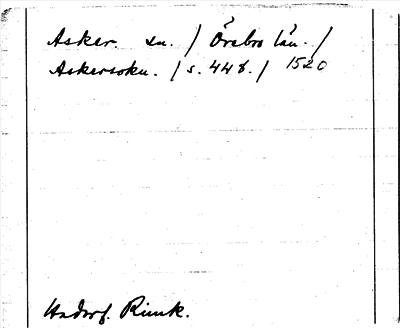 Asker. sn. / Örebro län. /
Askersokn. / s. 448. / 1520
Hadorf. Rimk.